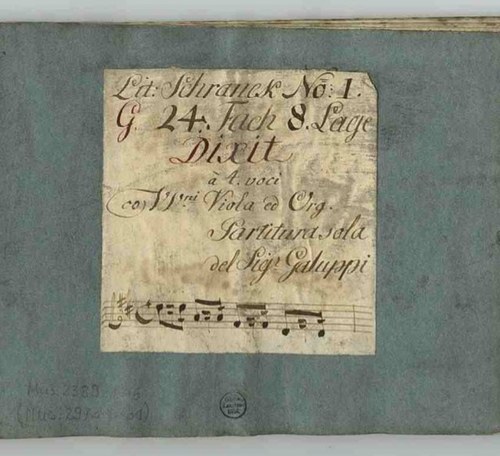 Lit: Schranck No: 1.
G. 24. Fach 8. Lage
Dixit
à 4. voci
co VVni Viola ed Org.
Partitura sola
del Sigr Galuppi
Mus. 2389